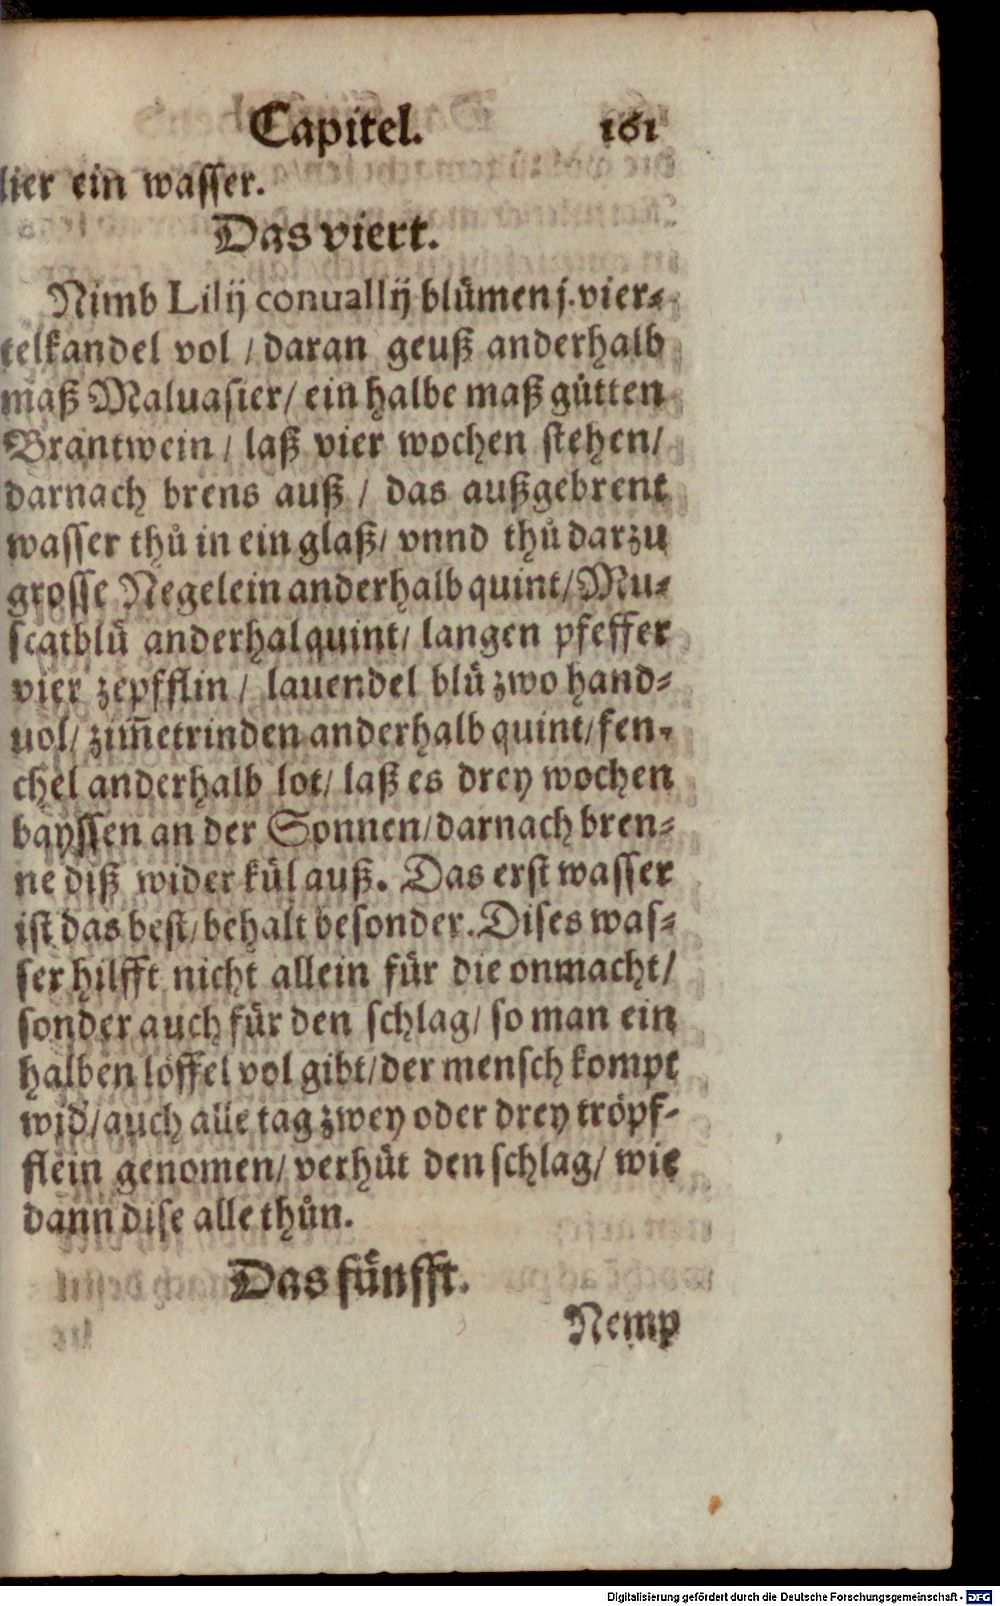 Capitel. 161
lier ein wasser.
Das viert.
Nimb Lilij conuallij blůmen j. vier-
telkandel vol / daran geuß anderhalb
maß Maluasier / ein halbe maß gůtten
Brantwein / laß vier wochen stehen /
darnach brens auß / das außgebrent
wasser thů in ein glaß / vnnd thů darzu
grosse Negelein anderhalb quint / Mu-
scatblů anderhalquint / langen pfeffer
vier zepfflin / lauendel blů zwo hand-
uol / zim̃etrinden anderhalb quint / fen-
chel anderhalb lot / laß es drey wochen
bayssen an der Sonnen / darnach bren-
ne diß wider kül auß. Das erst wasser
ist das best / behalt besonder. Dises was-
ser hilfft nicht allein für die onmacht /
sonder auch für den schlag / so man ein
halben löffel vol gibt / der mensch kompt
wid' / auch alle tag zwey oder drey tröpf-
flein genomen / verhüt den schlag / wie
dann dise alle thůn.
Das fünfft.
Nemp
Digitalisierung gefördert durch die Deutsche Forschungsgemeinschaft - DFG